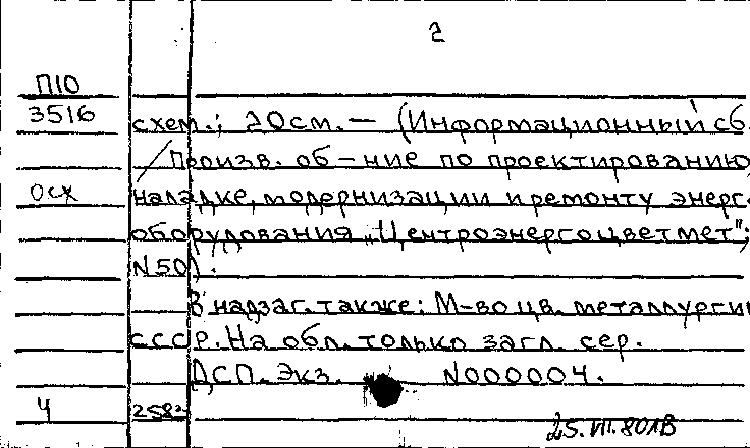 2
П10
3516
схем.; 20см. — (Информационный сб.
/Произв. об-ние по проектированию,
осх
наладке, модернизации и ремонту энерг.
оборудования „Центроэнергоцветмет";
N50).
В надзаг. также: М-во цв. металлургии
СССР. На обл. только загл. сер.
ДСП. Экз. N000004.
4
2582
25.VII.80